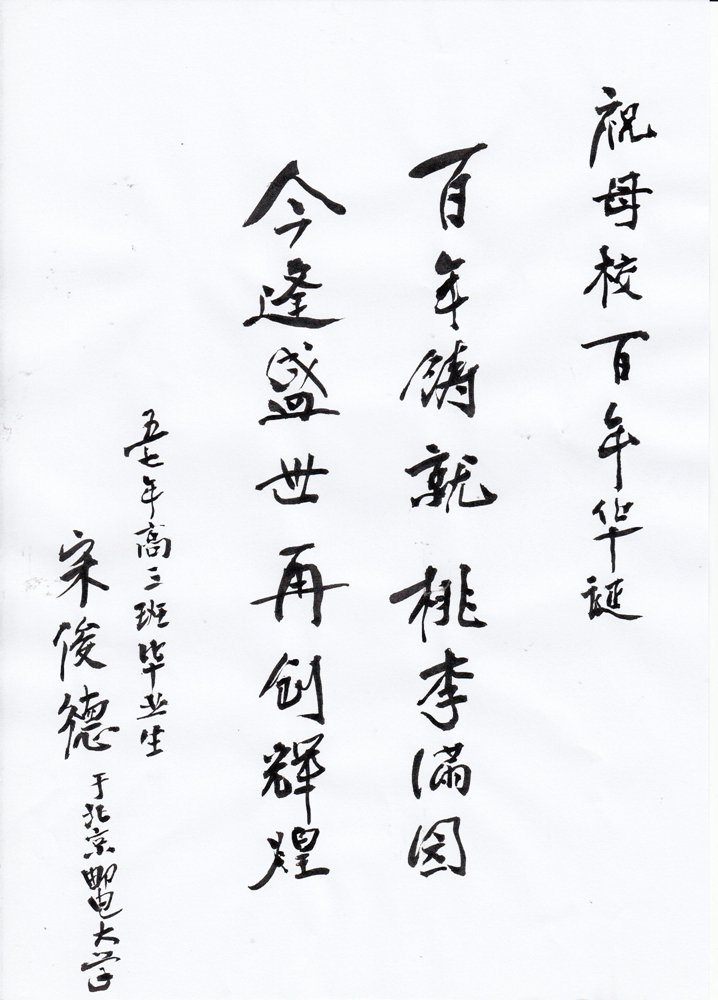 祝母校百年华诞
百年铸就桃李满园
今逢盛世再创辉煌
五七年高三班毕业生
宋俊德于北京邮电大学